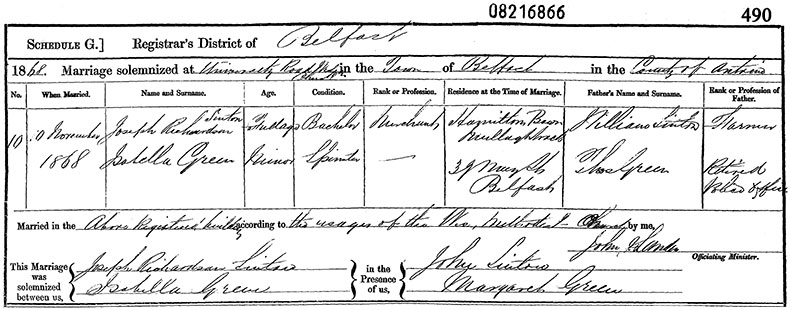 08216866 490
SCHEDULE G.] Registrar's District of Belfast
1868. Marriage solemnized at University Road in the Town of Belfast in the County of Antrim
No. When Married. Name and Surname. Age. Condition. Rank or Profession. Residence at the Time of Marriage. Father's Name and Surname. Rank or Profession of Father.
10 10 November 1868 Joseph Richardson Sinton Full age Bachelor Merchant Hamilton Bawn Mullaghbrack William Sinton Farmer
Isabella Green Minor Spinster — Belfast Thos Green Retired
Married in the Above Registered building according to the usages of the Wes. Methodist Church by me,
John
Officiating Minister.
This Marriage was solemnized between us, { Joseph Richardson Sinton } in the Presence of us, { John Sinton
Isabella Green Margaret Green